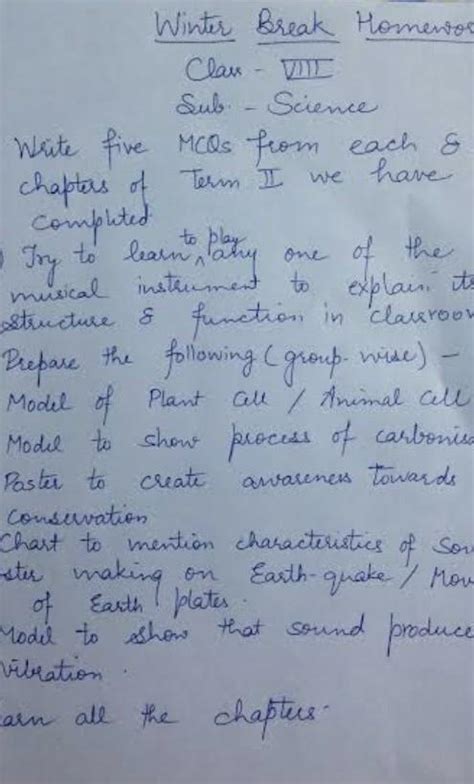 Winter Break Homewor
Class - VIII
Sub. - Science
Write five MCQs from each &
chapters of Term II we have
completed
Try to learn to play any one of the
musical instrument to explain its
structure & function in classroom
Prepare the following (group-wise) -
Model of Plant Cell / Animal Cell
Model to show process of carbonisa
Poster to create awareness towards
conservation
Chart to mention characteristics of Sou
ster making on Earth-quake / Mov
of Earth plates.
Model to show that sound produce
vibration.
earn all the chapters.